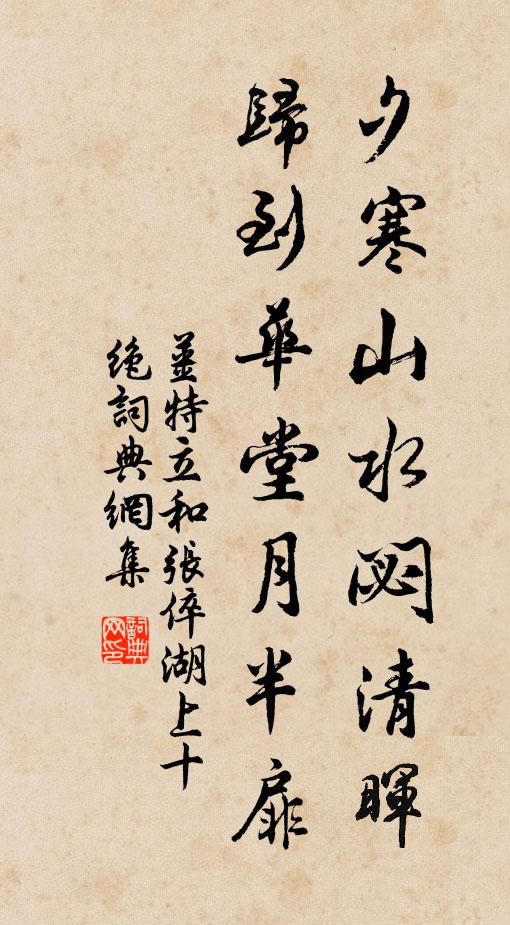 夕寒山水閟清暉
歸到華堂月半扉
姜特立和張倅湖上十
絶詞典網集
詞典
网印